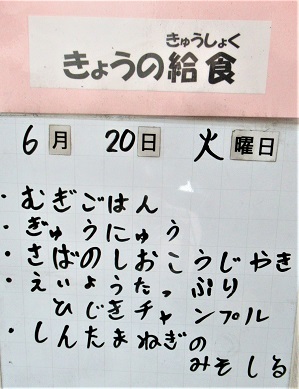 きゅうしょく
きょうの給食
6月 20日 火曜日
・むぎごはん
・ぎゅうにゅう
・さばのしおこうじやき
・えいようたっぷり
ひじきチャンプル
・しんたまねぎの
みそしる